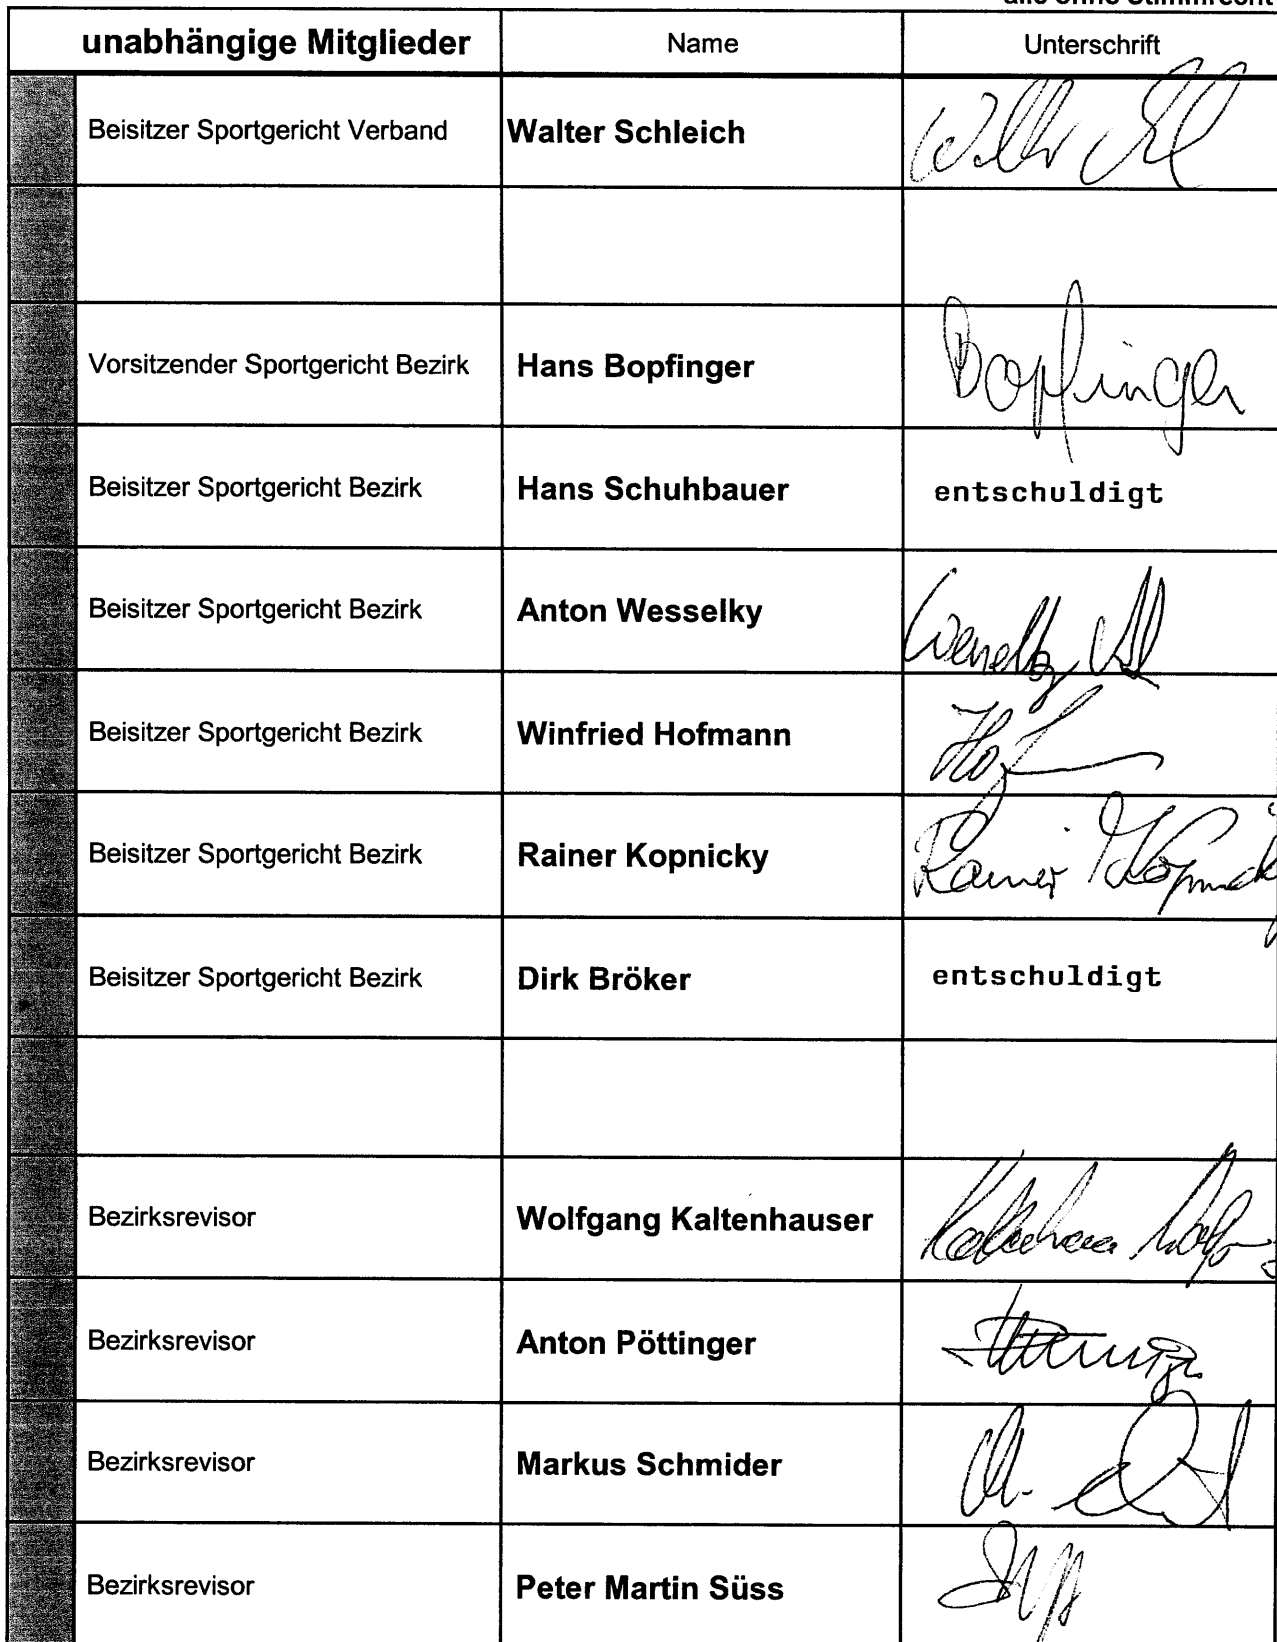 alle ohne Stimmrecht
unabhängige Mitglieder Name Unterschrift
Beisitzer Sportgericht Verband Walter Schleich
Vorsitzender Sportgericht Bezirk Hans Bopfinger Bopfinger
Beisitzer Sportgericht Bezirk Hans Schuhbauer entschuldigt
Beisitzer Sportgericht Bezirk Anton Wesselky
Beisitzer Sportgericht Bezirk Winfried Hofmann
Beisitzer Sportgericht Bezirk Rainer Kopnicky Rainer Kopnicky
Beisitzer Sportgericht Bezirk Dirk Bröker entschuldigt
Bezirksrevisor Wolfgang Kaltenhauser
Bezirksrevisor Anton Pöttinger
Bezirksrevisor Markus Schmider
Bezirksrevisor Peter Martin Süss